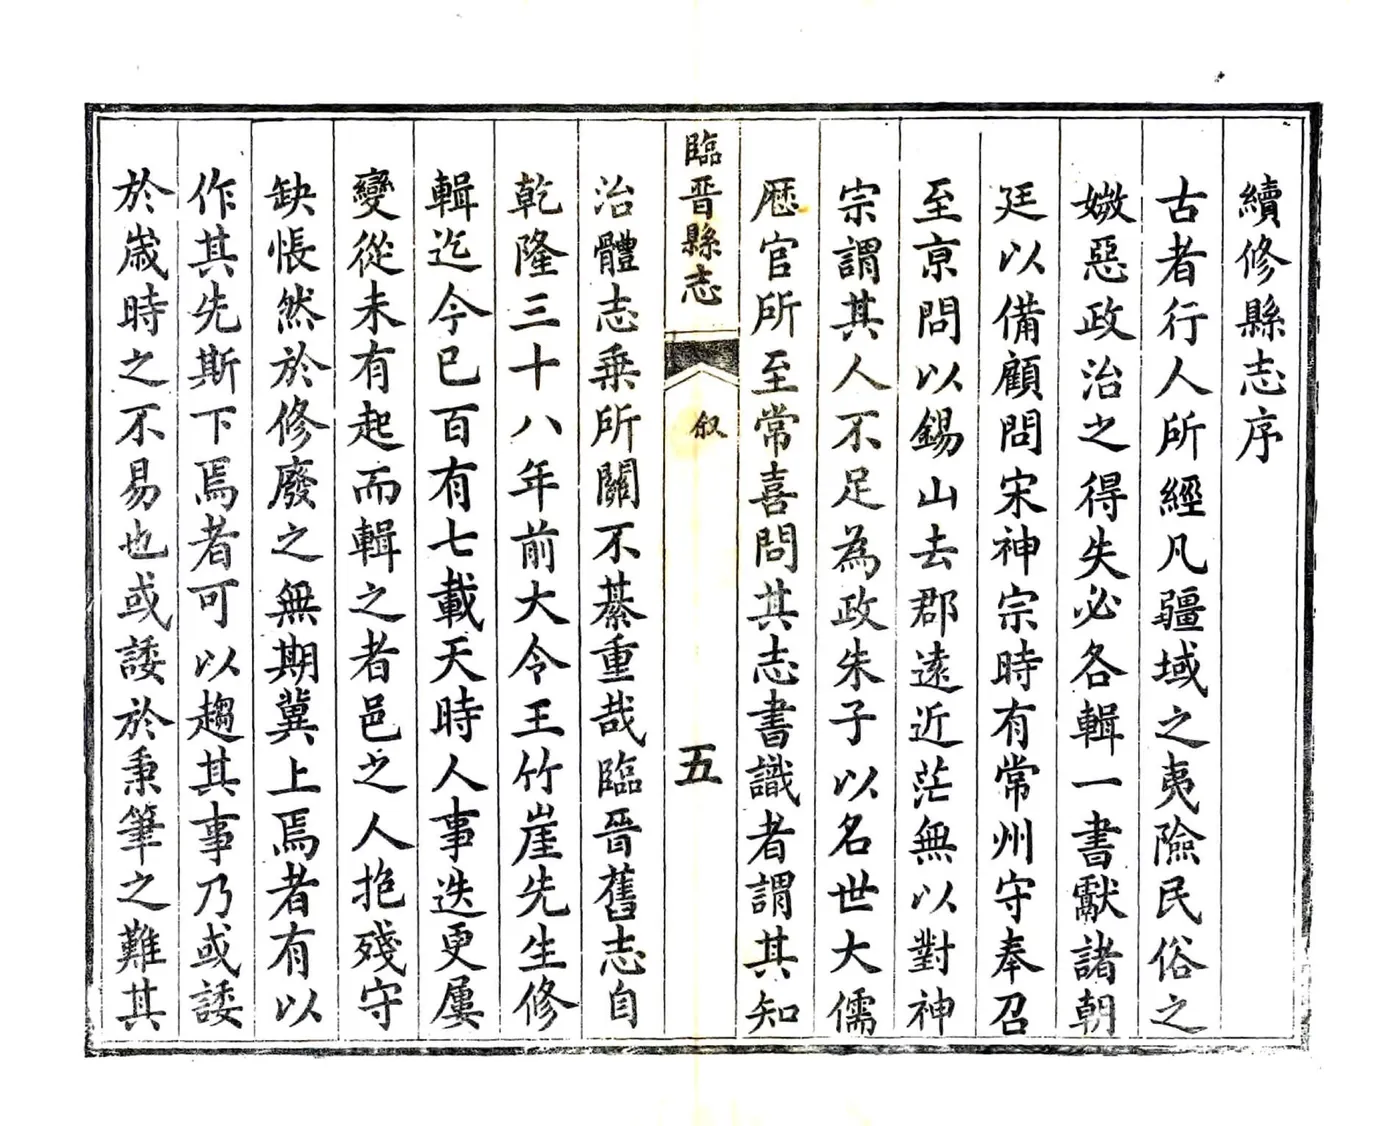 續修縣志序
古者行人所經凡疆域之夷險民俗之
媺惡政治之得失必各輯一書獻諸朝
廷以備顧問宋神宗時有常州守奉召
至京問以錫山去郡遠近茫無以對神
宗謂其人不足為政朱子以名世大儒
歷官所至常喜問其志書識者謂其知
臨晉縣志
叙
五
治體志乘所關不綦重哉臨晉舊志自
乾隆三十八年前大令王竹崖先生修
輯迄今已百有七載天時人事迭更屢
變從未有起而輯之者邑之人抱殘守
缺悵然於修廢之無期冀上焉者有以
作其先斯下焉者可以趨其事乃或諉
於歲時之不易也或諉於秉筆之難其